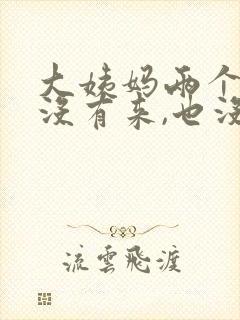 大姨妈两个
没有来,也没
流雲飛渡